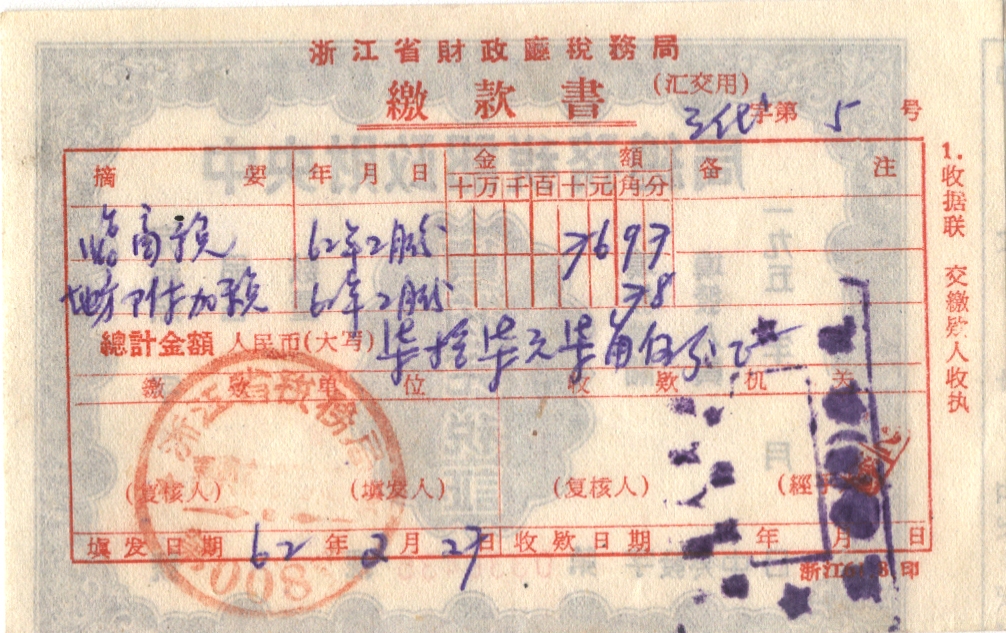 浙江省財政廳税務局
繳款書
(汇交用)
字第 5 号
摘要 年月日 金額 备注
十万千百十元角分
临商税 62年2月份 7697
地方附加税 62年2月份 78
總計金額 人民币(大写) 柒拾柒元柒角伍分正
繳款单位 收款机关
(复核人) (填发人) (复核人) (經手
填发日期 62年2月27日 收款日期 年月日
1.收据联 交繳款人收执
浙江省税務局
008
印